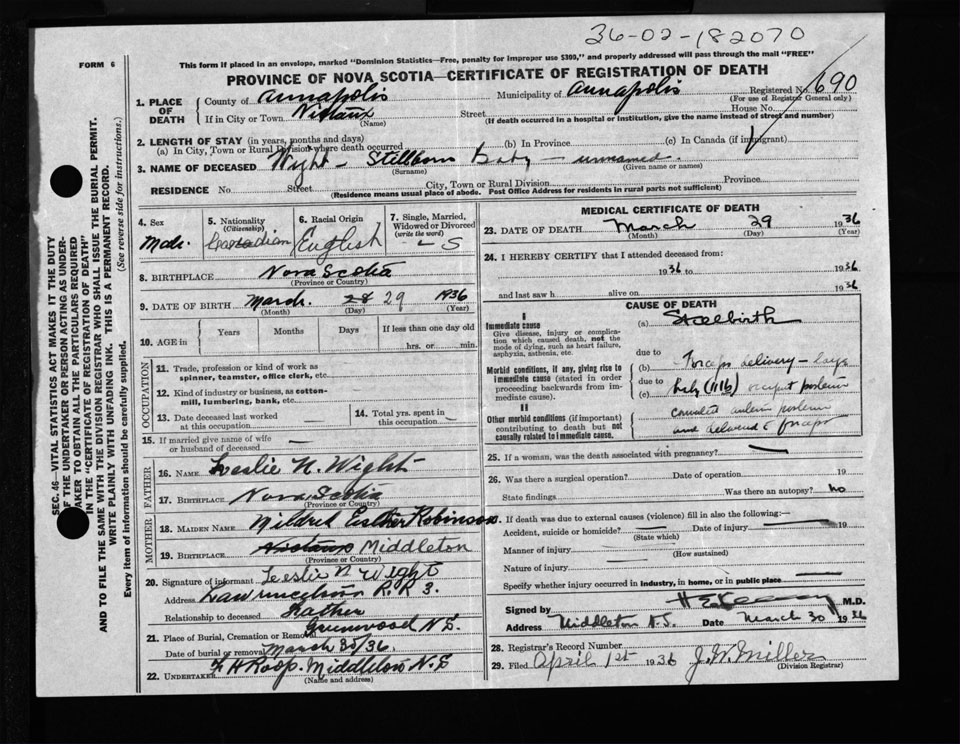 36-02-182070
FORM 6
This form if placed in an envelope, marked "Dominion Statistics—Free, penalty for improper use $300," and properly addressed will pass through the mail "FREE"
PROVINCE OF NOVA SCOTIA—CERTIFICATE OF REGISTRATION OF DEATH
Registered No. 690
(For use of Registrar General only)
1. PLACE OF DEATH
County of Annapolis
Municipality of Annapolis
If in City or Town Nictaux
(Name)
Street
House No.
(If death occurred in a hospital or institution, give the name instead of street and number)
2. LENGTH OF STAY (in years, months and days)
(a) In City, Town or Rural Division where death occurred
(b) In Province
(c) In Canada (if immigrant)
3. NAME OF DECEASED Wight - Stillborn Baby - unnamed.
(Surname)
(Given name or names)
RESIDENCE No.
Street
City, Town or Rural Division
Province
(Residence means usual place of abode. Post Office Address for residents in rural parts not sufficient)
SEC. 46—VITAL STATISTICS ACT MAKES IT THE DUTY
OF THE UNDERTAKER OR PERSON ACTING AS UNDER-
TAKER TO OBTAIN ALL THE PARTICULARS REQUIRED
IN THE "CERTIFICATE OF REGISTRATION OF DEATH"
AND TO FILE THE SAME WITH THE DIVISION REGISTRAR WHO SHALL ISSUE THE BURIAL PERMIT.
WRITE PLAINLY WITH UNFADING INK. THIS IS A PERMANENT RECORD.
Every item of information should be carefully supplied. (See reverse side for instructions.)
4. Sex
Male.
5. Nationality
(Citizenship)
Canadian
6. Racial Origin
English
7. Single, Married, Widowed or Divorced
(write the word)
- S
8. BIRTHPLACE Nova Scotia
(Province or Country)
9. DATE OF BIRTH March. 28 29 1936
(Month) (Day) (Year)
10. AGE in
Years
Months
Days
If less than one day old
hrs. or min.
OCCUPATION
11. Trade, profession or kind of work as
spinner, teamster, office clerk, etc.
12. Kind of industry or business, as cotton-
mill, lumbering, bank, etc.
13. Date deceased last worked
at this occupation
14. Total yrs. spent in
this occupation
15. If married give name of wife
or husband of deceased
FATHER
16. NAME Leslie N. Wight
17. BIRTHPLACE Nova Scotia
(Province or Country)
MOTHER
18. MAIDEN NAME Mildred Esther Robinson.
19. BIRTHPLACE Middleton
(Province or Country)
20. Signature of informant Leslie N Wight
Address Lawrencetown R.R 3.
Relationship to deceased Father
21. Place of Burial, Cremation or Removal Greenwood N.S.
Date of burial or removal March 30/36.
22. UNDERTAKER F. H Roop. Middleton N.S
(Name and address)
MEDICAL CERTIFICATE OF DEATH
23. DATE OF DEATH March 29 1936
(Month) (Day) (Year)
24. I HEREBY CERTIFY that I attended deceased from:
1936 to 1936
and last saw h alive on 1936
CAUSE OF DEATH
I
Immediate cause
Give disease, injury or complica-
tion which caused death, not the
mode of dying, such as heart failure,
asphyxia, asthenia, etc.
(a) Stillbirth
due to
Morbid conditions, if any, giving rise to
immediate cause (stated in order
proceeding backwards from im-
mediate cause).
(b) Forceps delivery - large
due to
(c) baby (11lb) occiput posterior
II
Other morbid conditions (if important)
contributing to death but not
causally related to immediate cause.
and delivered forceps
25. If a woman, was the death associated with pregnancy?
26. Was there a surgical operation?
Date of operation 19
State findings
Was there an autopsy? no
27. If death was due to external causes (violence) fill in also the following:—
Accident, suicide or homicide?
Date of injury 19
(State which)
Manner of injury
(How sustained)
Nature of injury
Specify whether injury occurred in industry, in home, or in public place
Signed by M.D.
Address Middleton N.S. Date March 30 1936
28. Registrar's Record Number
29. Filed April 1st 1936 J. W. Miller
(Division Registrar)